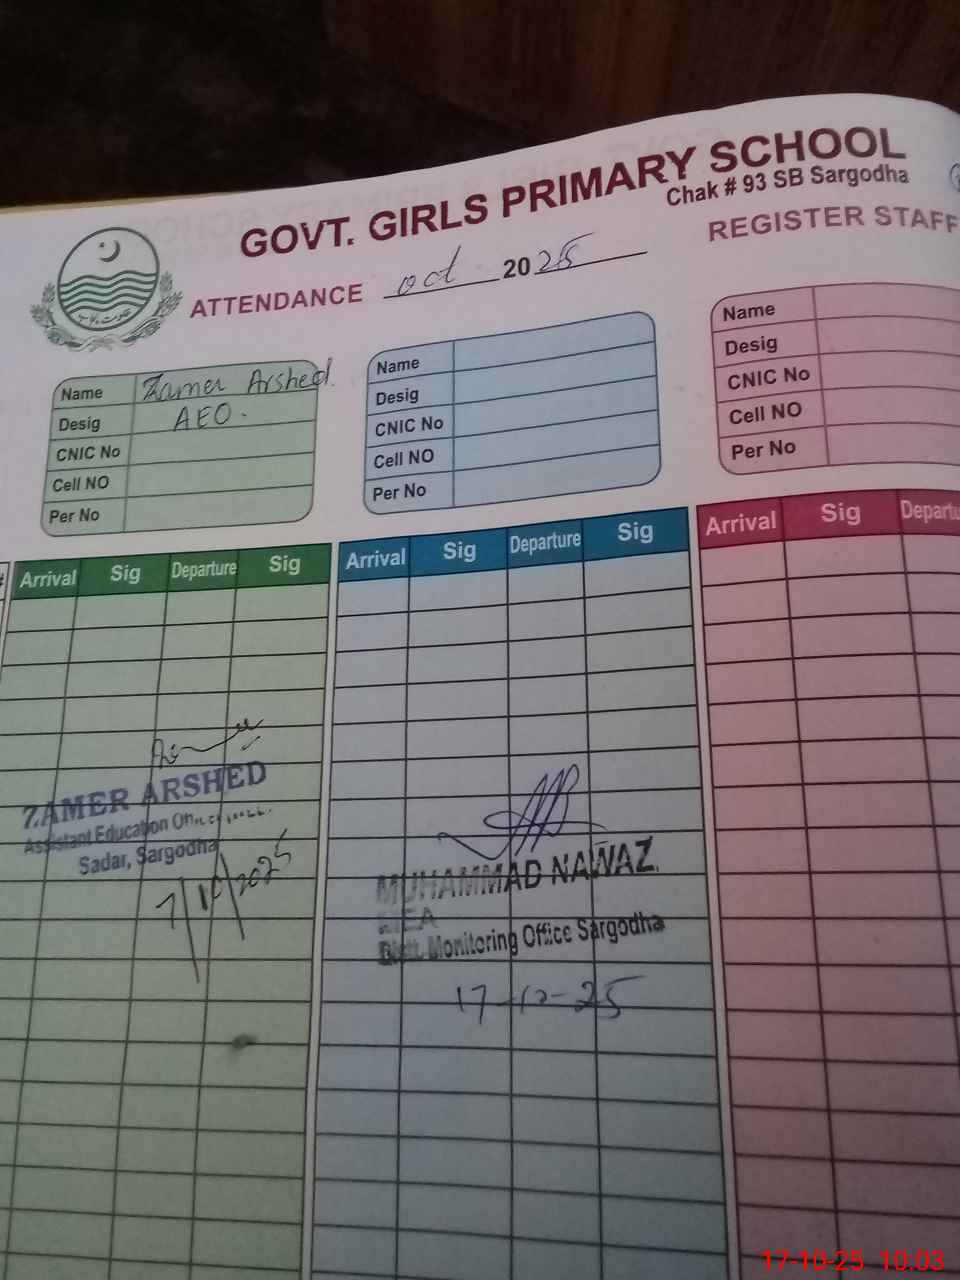 GOVT. GIRLS PRIMARY SCHOOL
Chak # 93 SB Sargodha
ATTENDANCE oct 2025
REGISTER STAFF
Name Zamer Arshed.
Desig AEO.
CNIC No
Cell NO
Per No
Name
Desig
CNIC No
Cell NO
Per No
Name
Desig
CNIC No
Cell NO
Per No
Arrival Sig Departure Sig
Arrival Sig Departure Sig
Arrival Sig Departu
ZAMER ARSHED
Assistant Education
Sadar, Sargodha
7/10/2025
MUHAMMAD NAWAZ
MEA
Distt. Monitoring Office Sargodha
17-10-25
17-10-25 10:03